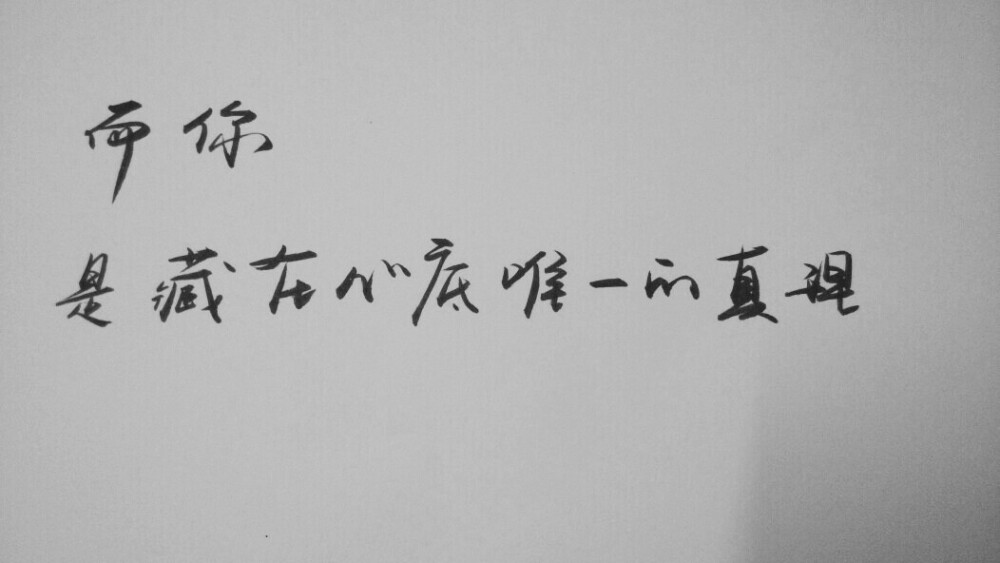 而你
是藏在心底唯一的真理